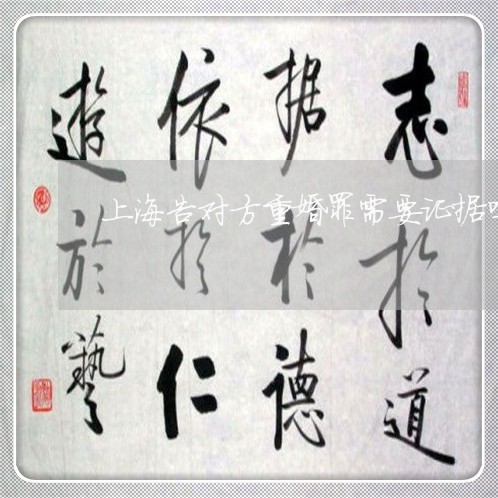 志於道
据於德
依於仁
遊於藝
上海告对方重婚罪需要证据